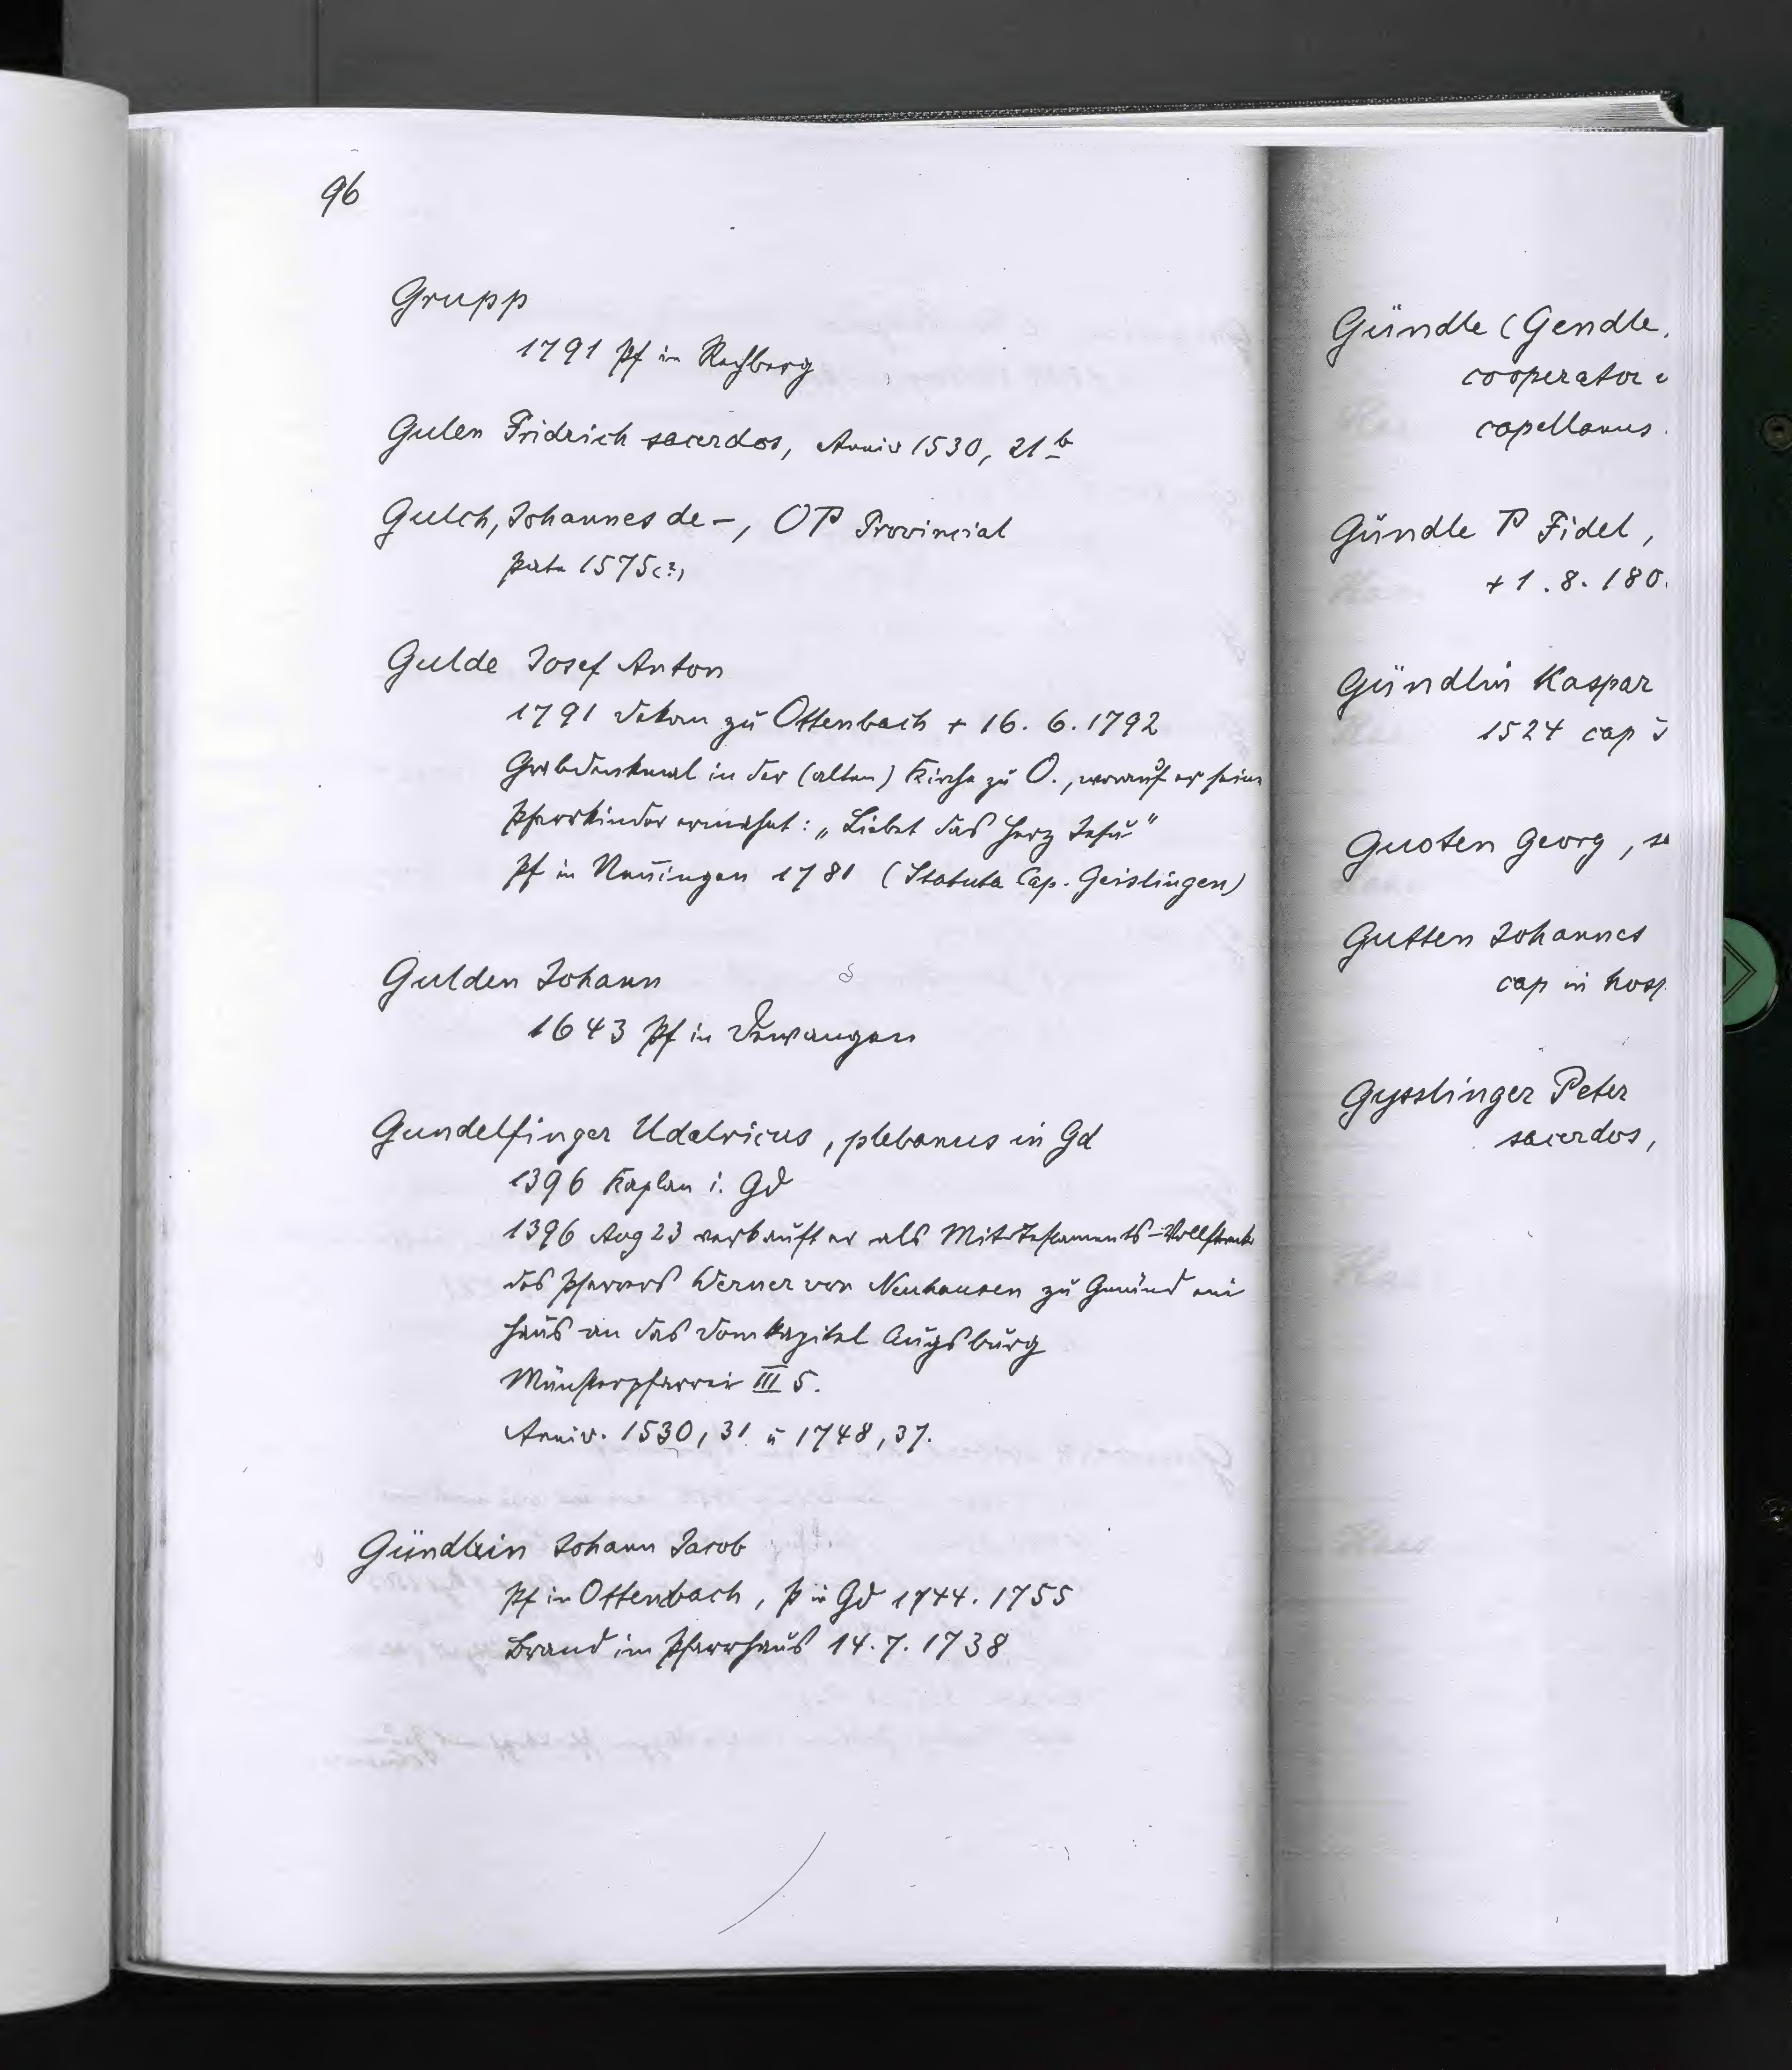 96
Grupp
1791 Pf in Rechberg
Gulen Fridrich sacerdos, Anniv 1530, 21b
Gulch, Johannes de –, OP Provincial
1575 (?)
Gulde Josef Anton
1791 Dekan zu Ottenbach + 16. 6. 1792
Grabdenkmal in der (alten) Kirche zu O., worauf er seine
Pfarrkinder ermahnt: „Liebet das Herz Jesu"
Pf in Nenningen 1781 (Statuta Cap. Geislingen)
Gulden Johann
1643 Pf in Dewangen
Gundelfinger Udalricus, plebanus in Gd
1396 Kaplan i. Gd
1396 Aug 23 verkauft er als Mit-Testaments-Vollstreck
des Pfarrers Werner von Neuhausen zu Gmünd ein
Haus an das Domkapitel Augsburg
Münsterpfarrei III 5.
Anniv. 1530, 31 u 1748, 37.
Gündlein Johann Jacob
Pf in Ottenbach, P in Gd 1744. 1755
Brand im Pfarrhaus 14. 7. 1738
Gündle (Gendle,
cooperator
capellanus
Gündle P Fidel,
+ 1. 8. 180
Gündlin Kaspar
1524 cap
Guoten Georg,
Gutten Johannes
cap in hosp
Gysslinger Peter
sacerdos,